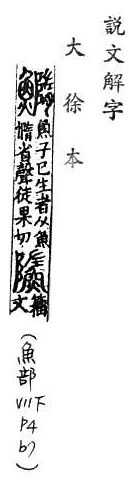 説文解字
大徐本
魚子已生者从魚
憜省聲徒果切
籒
文
(魚部
VII下
P4
b7)